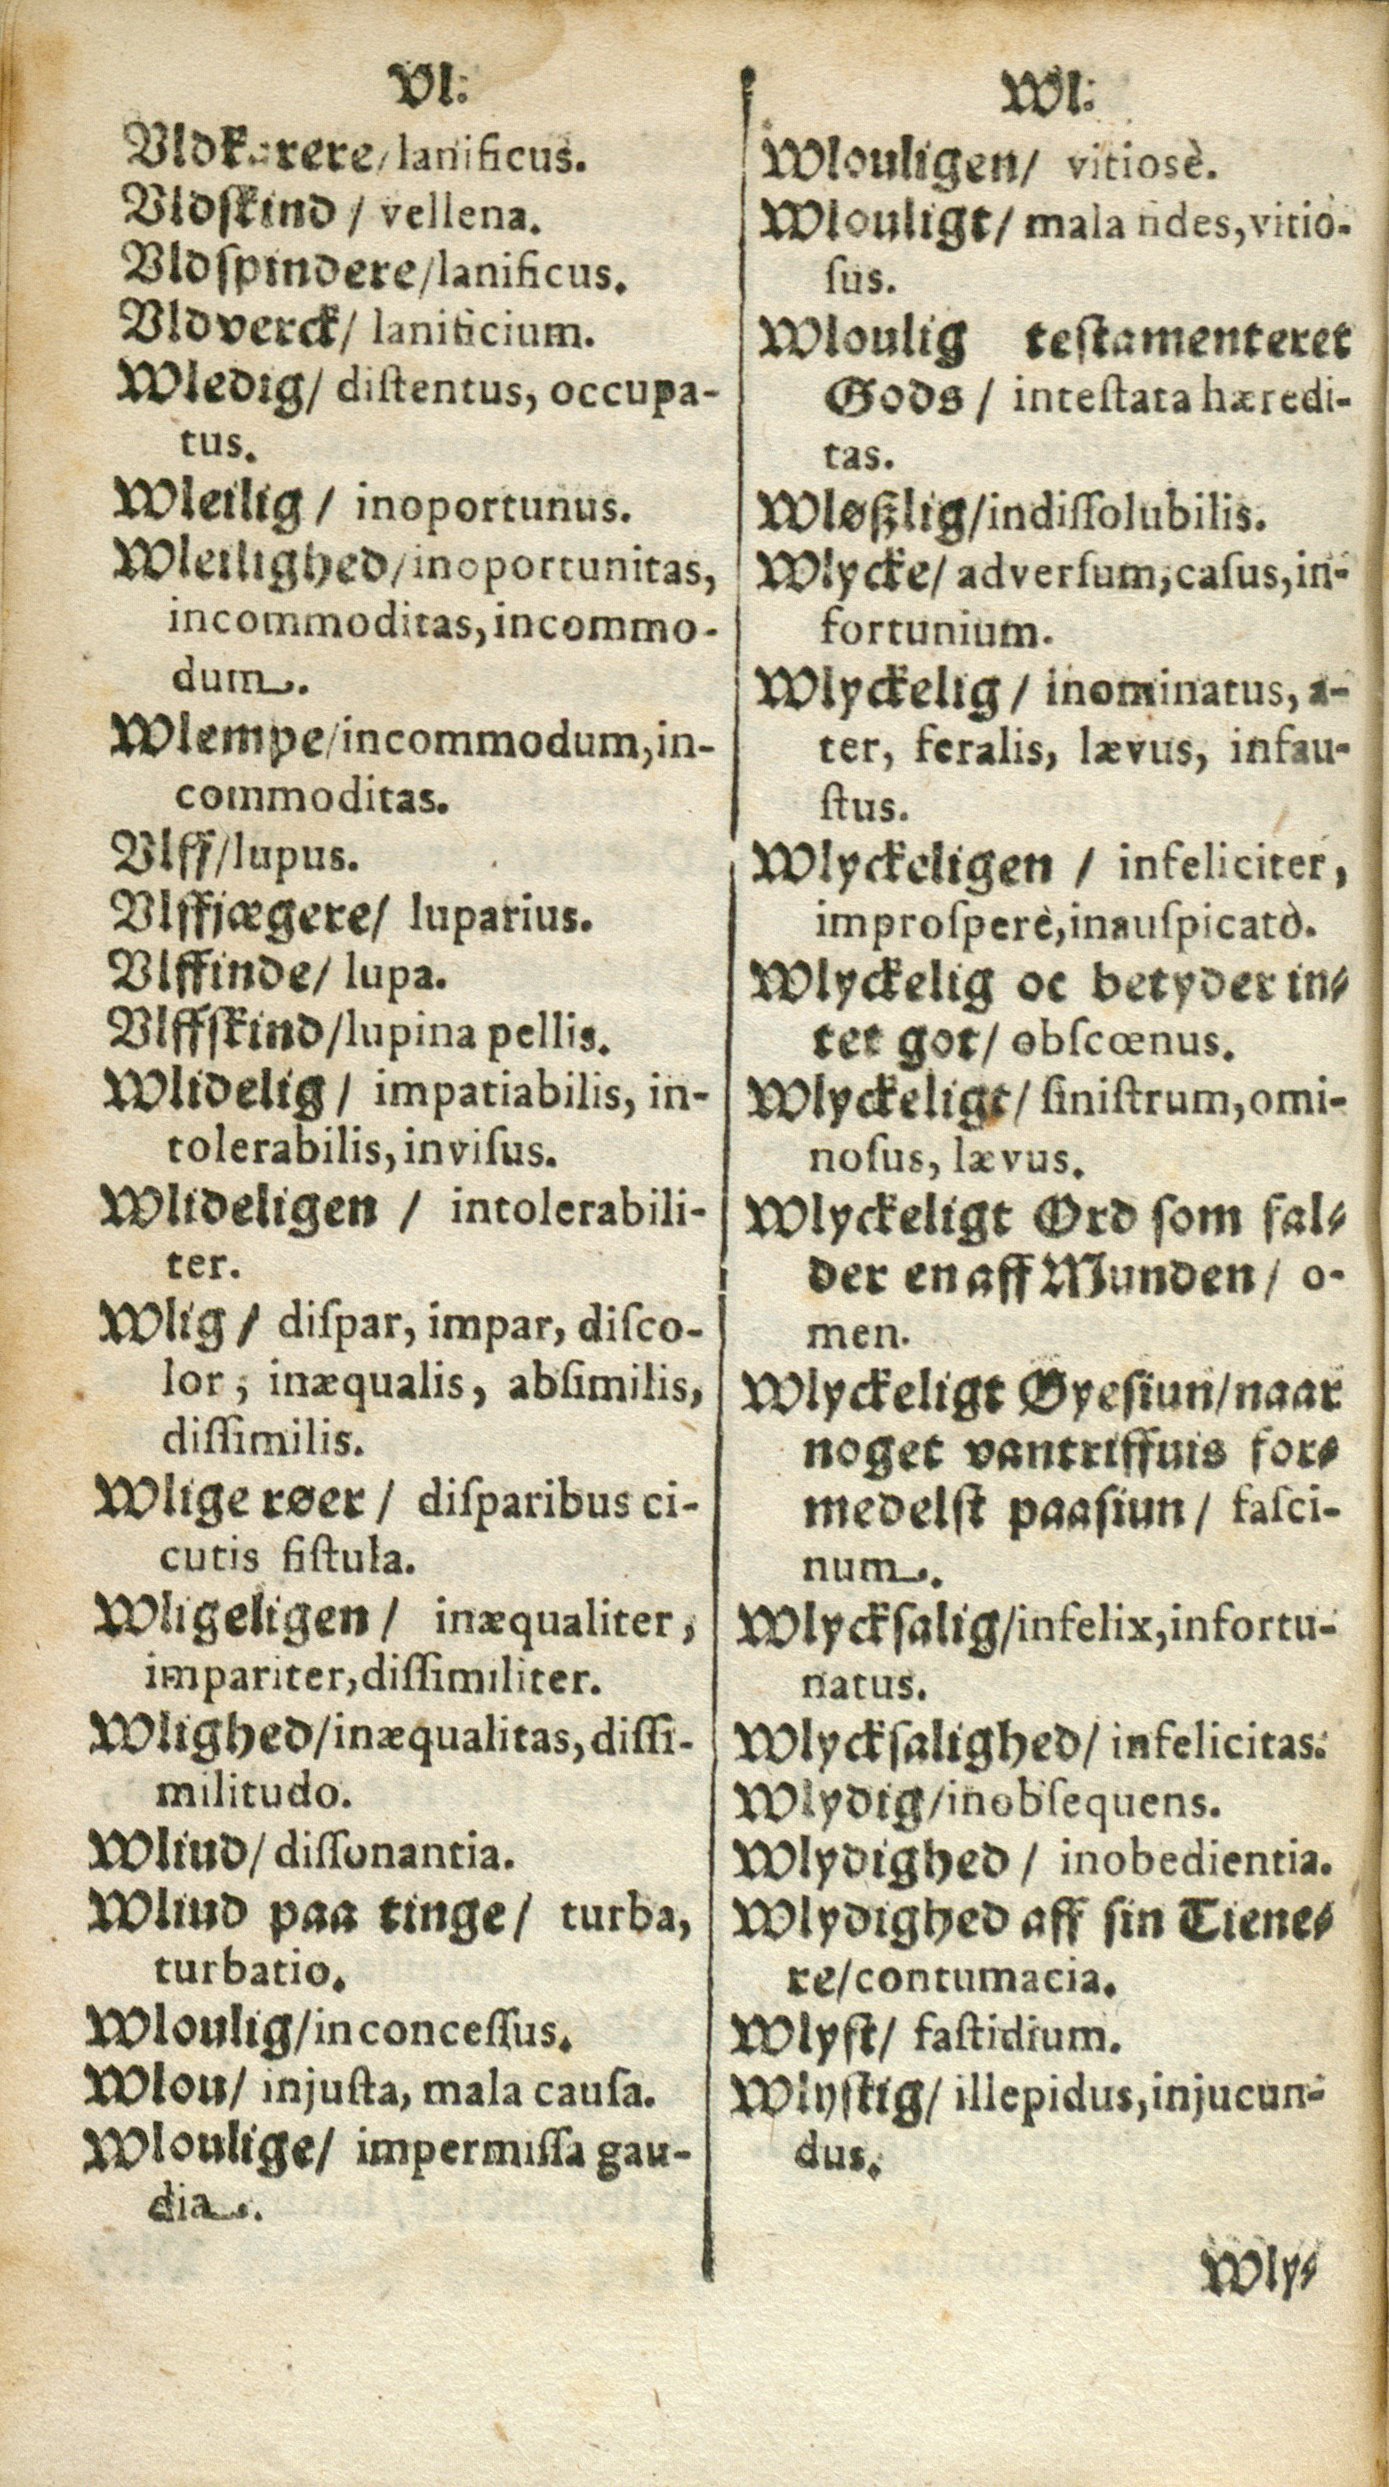 Vl:
Uldkarere/lanificus.
Uldſkind / vellena.
Uldſpindere/lanificus.
Uldverck/ lanificium.
Wledig/ diſtentus, occupa-
tus.
Wleilig / inoportunus.
Wleilighed/inoportunitas,
incommoditas, incommo-
dum.
Wlempe/incommodum, in-
commoditas.
Ulff/lupus.
Ulffjægere/ luparius.
Ulffinde/ lupa.
Ulffſkind/lupina pellis.
Wlidelig / impatiabilis, in-
tolerabilis, inviſus.
Wlideligen / intolerabili-
ter.
Wlig / diſpar, impar, diſco-
lor, inæqualis, abſimilis,
diſſimilis.
Wlige røer / diſparibus ci-
cutis fiſtula.
Wligeligen / inæqualiter,
impariter, diſſimiliter.
Wlighed/inæqualitas, diſſi-
militudo.
Wliud/ diſſonantia.
Wliud paa tinge/ turba,
turbatio.
Wloulig/inconceſſus.
Wlou/ injuſta, mala cauſa.
Wloulige/ impermiſſa gau-
dia.
Wl:
Wlouligen/ vitiosè.
Wlouligt/ mala fides, vitio-
ſus.
Wloulig teſtamenteret
Gods / inteſtata hæredi-
tas.
Wløßlig/indiſſolubilis.
Wlycke/ adverſum, caſus, in-
fortunium.
Wlyckelig / inominatus, a-
ter, feralis, lævus, infau-
ſtus.
Wlyckeligen / infeliciter,
improſperè, inauſpicatò.
Wlyckelig oc betyder in-
tet got/ obſcœnus.
Wlyckeligt/ ſiniſtrum, omi-
noſus, lævus.
Wlyckeligt Ord ſom fal-
der en aff Munden / o-
men.
Wlyckeligt Øyeſiun/naar
noget vantriffuis for-
medelſt paaſiun / faſci-
num.
Wlyckſalig/infelix, infortu-
natus.
Wlyckſalighed/ infelicitas.
Wlydig/inobſequens.
Wlydighed / inobedientia.
Wlydighed aff ſin Tiene-
re/contumacia.
Wlyſt/ faſtidium.
Wlyſtig/ illepidus, injucun-
dus.
Wly-